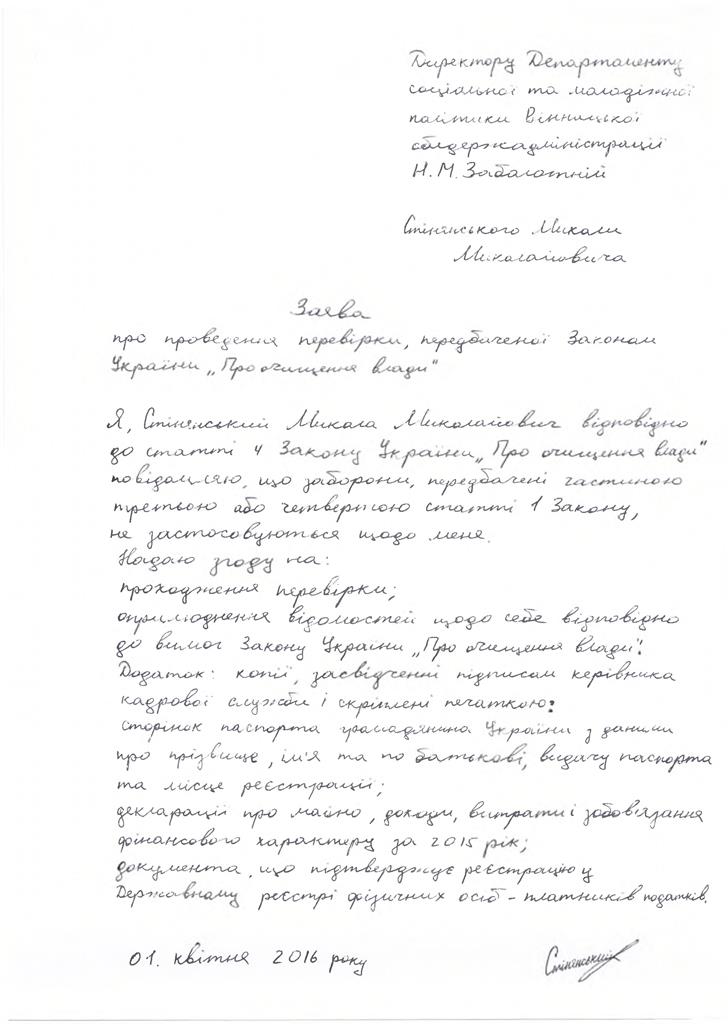 Директору Департаменту
соціальної та молодіжної
політики Вінницької
облдержадміністрації
Н.М. Заболотній
Стінянського Миколи
Миколайовича
Заява
про проведення перевірки, передбаченої Законом
України „Про очищення влади"
Я, Стінянський Микола Миколайович відповідно
до статті 4 Закону України „Про очищення влади"
повідомляю, що заборони, передбачені частиною
третьою або четвертою статті 1 Закону,
не застосовуються щодо мене.
Надаю згоду на:
проходження перевірки;
оприлюднення відомостей щодо себе відповідно
до вимог Закону України „Про очищення влади".
Додаток: копії, засвідченні підписом керівника
кадрової служби і скріплені печаткою:
сторінок паспорта громадянина України з даними
про прізвище, ім'я та по батькові, видачу паспорта
та місце реєстрації;
декларації про майно, доходи, витрати і зобов'язання
фінансового характеру за 2015 рік;
документа, що підтверджує реєстрацію у
Державному реєстрі фізичних осіб - платників податків.
01. квітня 2016 року
Стінянський